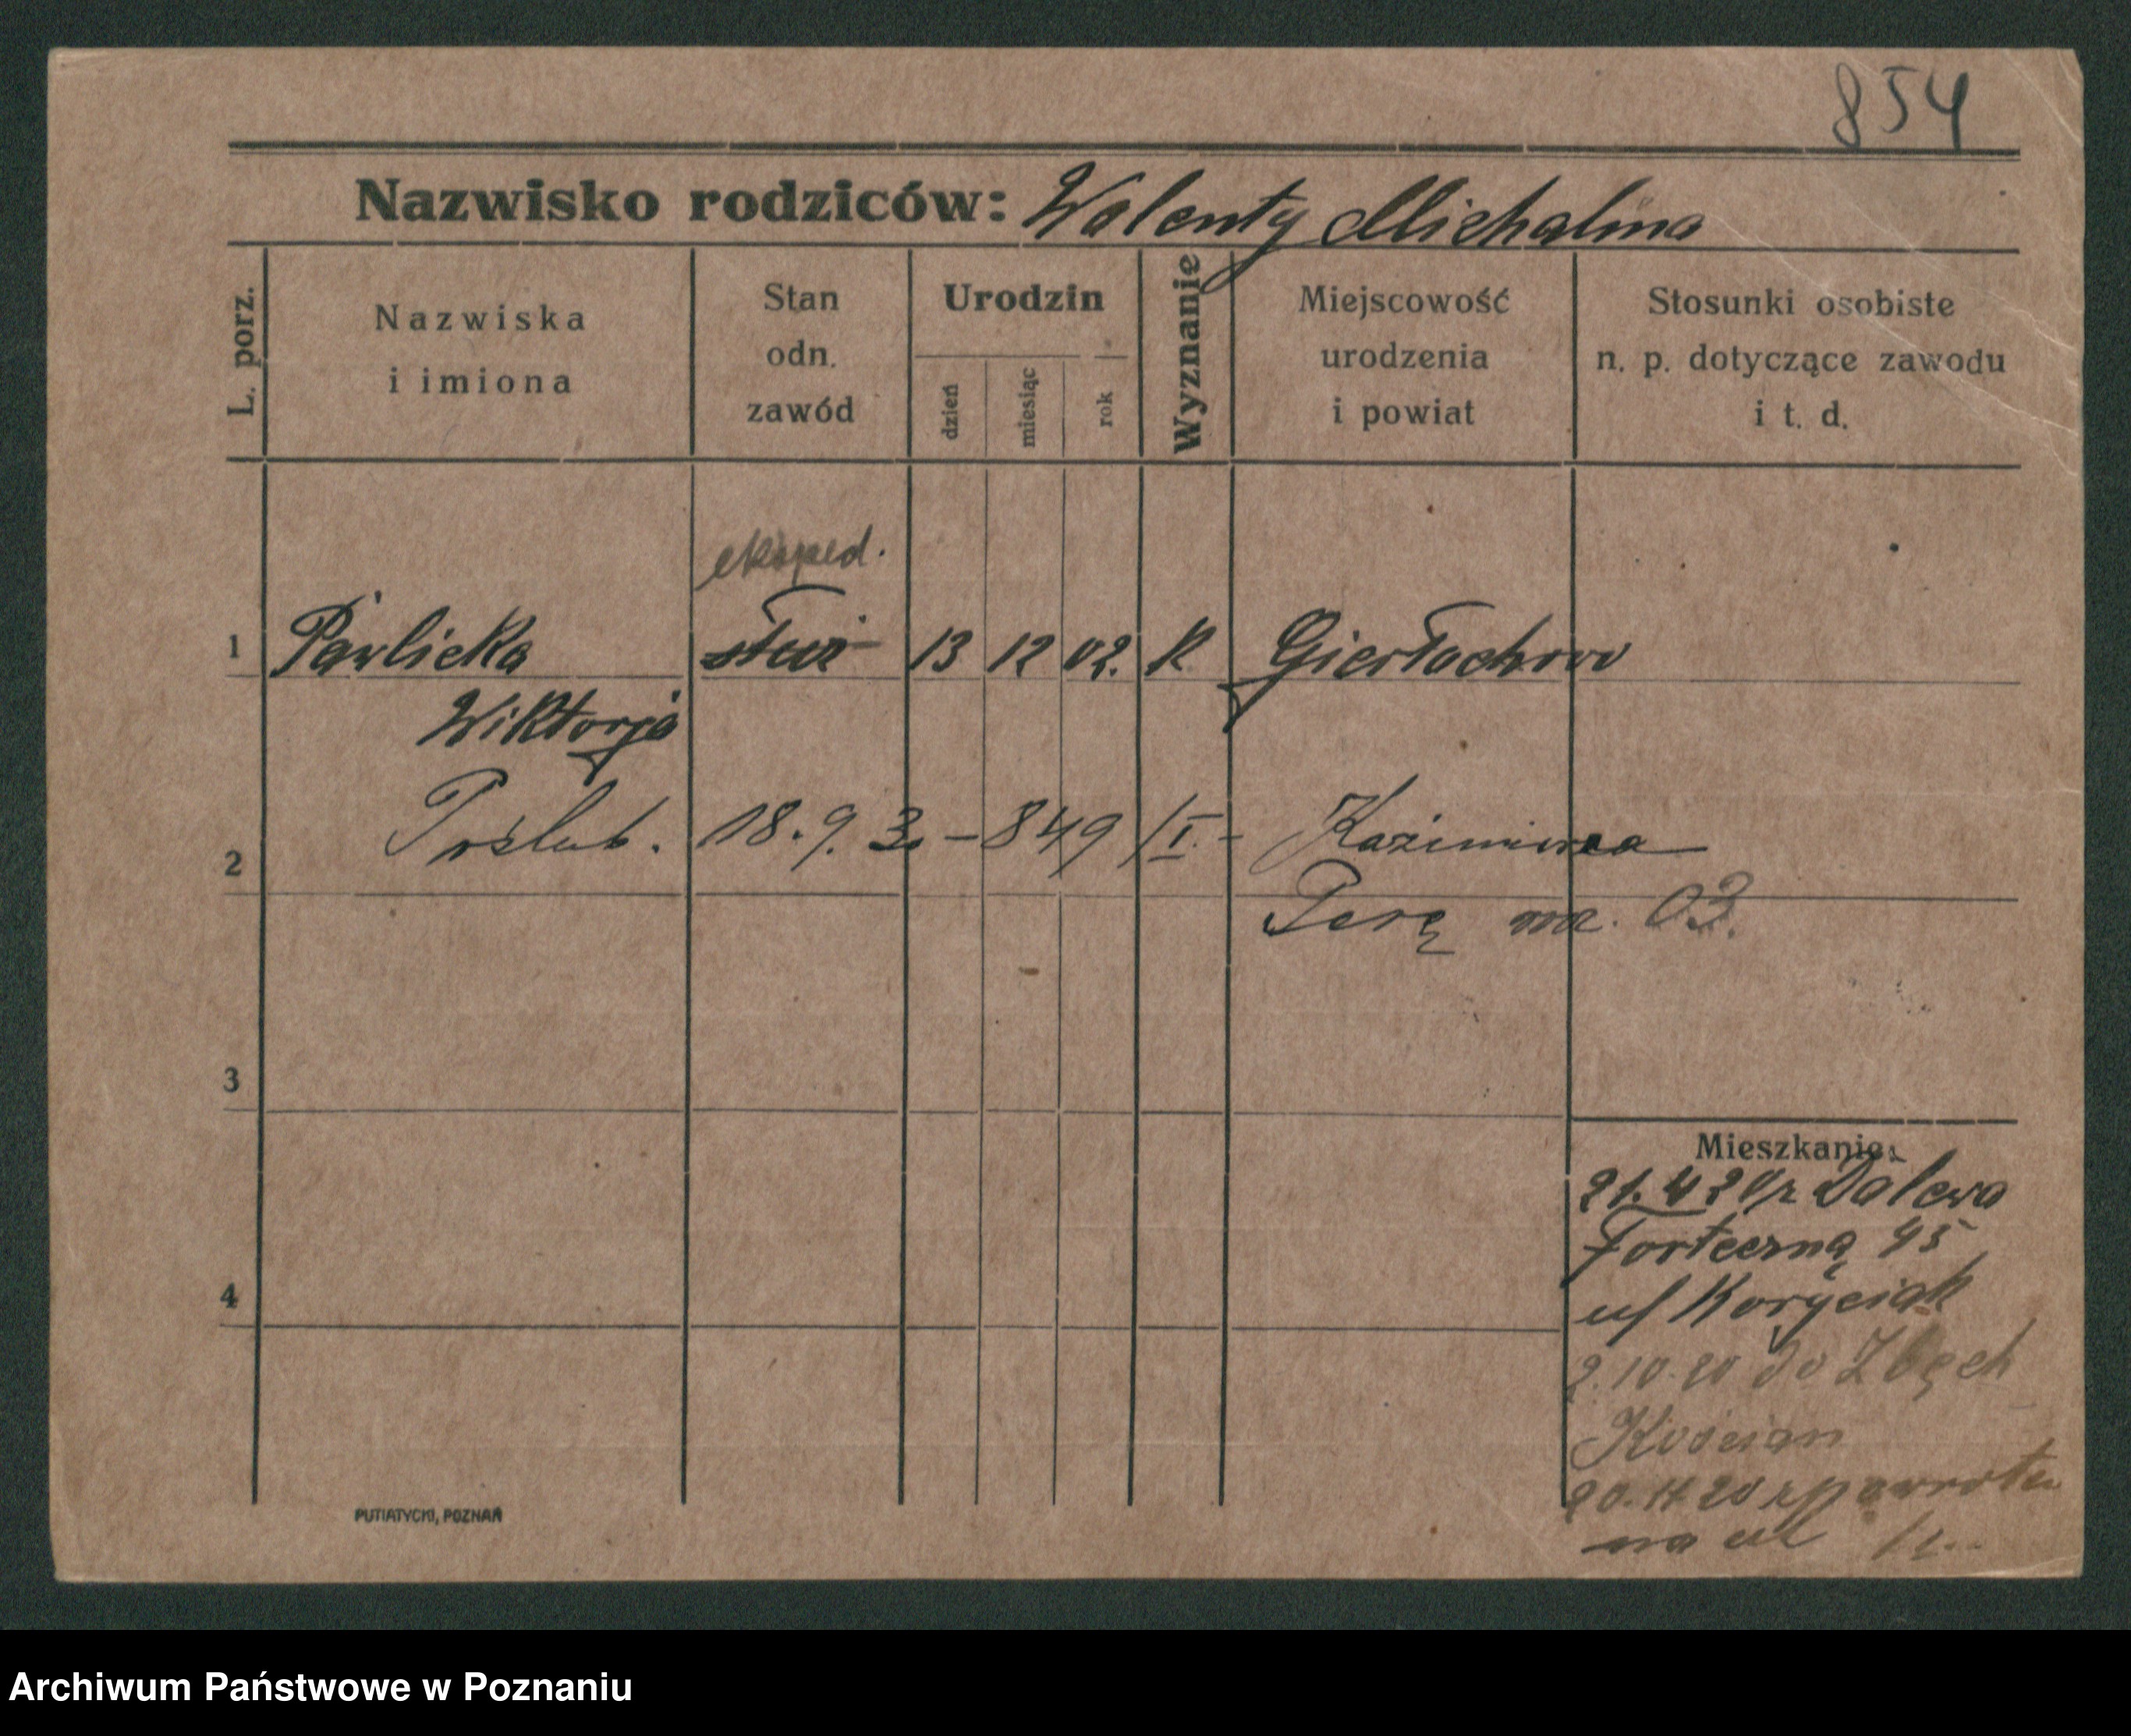 854
Nazwisko rodziców: Walenty Michalina
L. porz.
Nazwiska
i imiona
Stan
odn.
zawód
Urodzin
dzień
miesiąc
rok
Wyznanie
Miejscowość
urodzenia
i powiat
Stosunki osobiste
n. p. dotyczące zawodu
i t. d.
eksped.
1 Pawlicka służ 13 12 02. K Gierłachowo
Wiktorja
2 Poślub. 18. 9. 3. - 849 / I. - Kazimierza
ur. 03.
3
Mieszkanie:
21. 4 20 z Dalewa
Forteczna 45
4
u/ Koryciak
2. 10. 20 do Zbęch
Kościan
20. 11 20 z powrotem
na ul
PUTIATYCKI, POZNAŃ
Archiwum Państwowe w Poznaniu